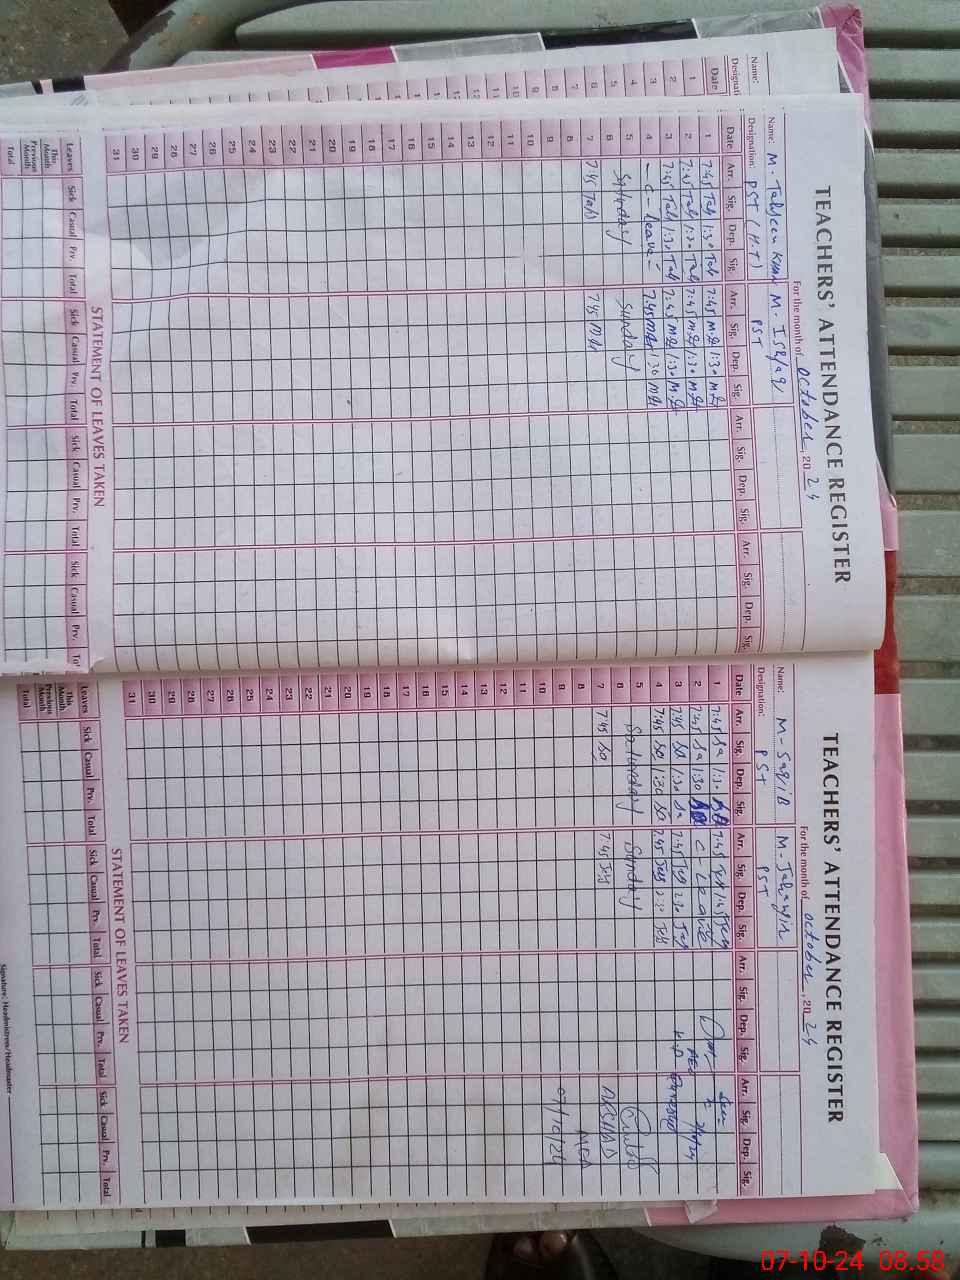 TEACHERS' ATTENDANCE REGISTER
For the month of October, 2024
Name: M. Tahseen Khan M. Ishaq
Designation: PST (H.T) PST
Date Arr. Sig. Dep. Sig. Arr. Sig. Dep. Sig. Arr. Sig. Dep. Sig. Arr. Sig. Dep. Sig.
1 7:45 Tah 1:30 Tah 7:45 1:30
2 7:45 Tah 1:30 Tah 7:45 1:30
3 7:45 Tah 1:30 Tah 7:45 1:30
4 - C - Leave - 7:45 1:30
5 Saturday Sunday
6
7 7:45 Tah 7:45
8
9
10
11
12
13
14
15
16
17
18
19
20
21
22
23
24
25
26
27
28
29
30
31
STATEMENT OF LEAVES TAKEN
Leaves Sick Casual Prv. Total Sick Casual Prv. Total Sick Casual Prv. Total Sick Casual Prv. To
This Month
Previous Month
Total
Name:
Designati
Date
1
2
3
4
5
6
7
8
9
10
TEACHERS' ATTENDANCE REGISTER
For the month of October, 2024
Name: M-Saqib M-Jahangir
Designation: PST PST
Date Arr. Sig. Dep. Sig. Arr. Sig. Dep. Sig. Arr. Sig. Dep. Sig. Arr. Sig. Dep. Sig.
1 7:45 Sa 1:30 7:45 1:45
2 7:45 Sa 1:30 C - Leave
3 7:45 Sa 1:30 Sa 7:45 Jeh 2:30 Jeh
4 7:45 Sa 1:30 Sa 7:45 Jeh 2:30 Jeh
5 Saturday Sunday
6 ARSHAD
7 7:45 Sa 7:45 Jeh
8 MEA
9 07/10/24
10
11
12
13
14
15
16
17
18
19
20
21
22
23
24
25
26
27
28
29
30
31
STATEMENT OF LEAVES TAKEN
Leaves Sick Casual Prv. Total Sick Casual Prv. Total Sick Casual Prv. Total Sick Casual Prv. Total
This Month
Previous Month
Total
Signature: Headmistress/Headmaster
07-10-24 08:58